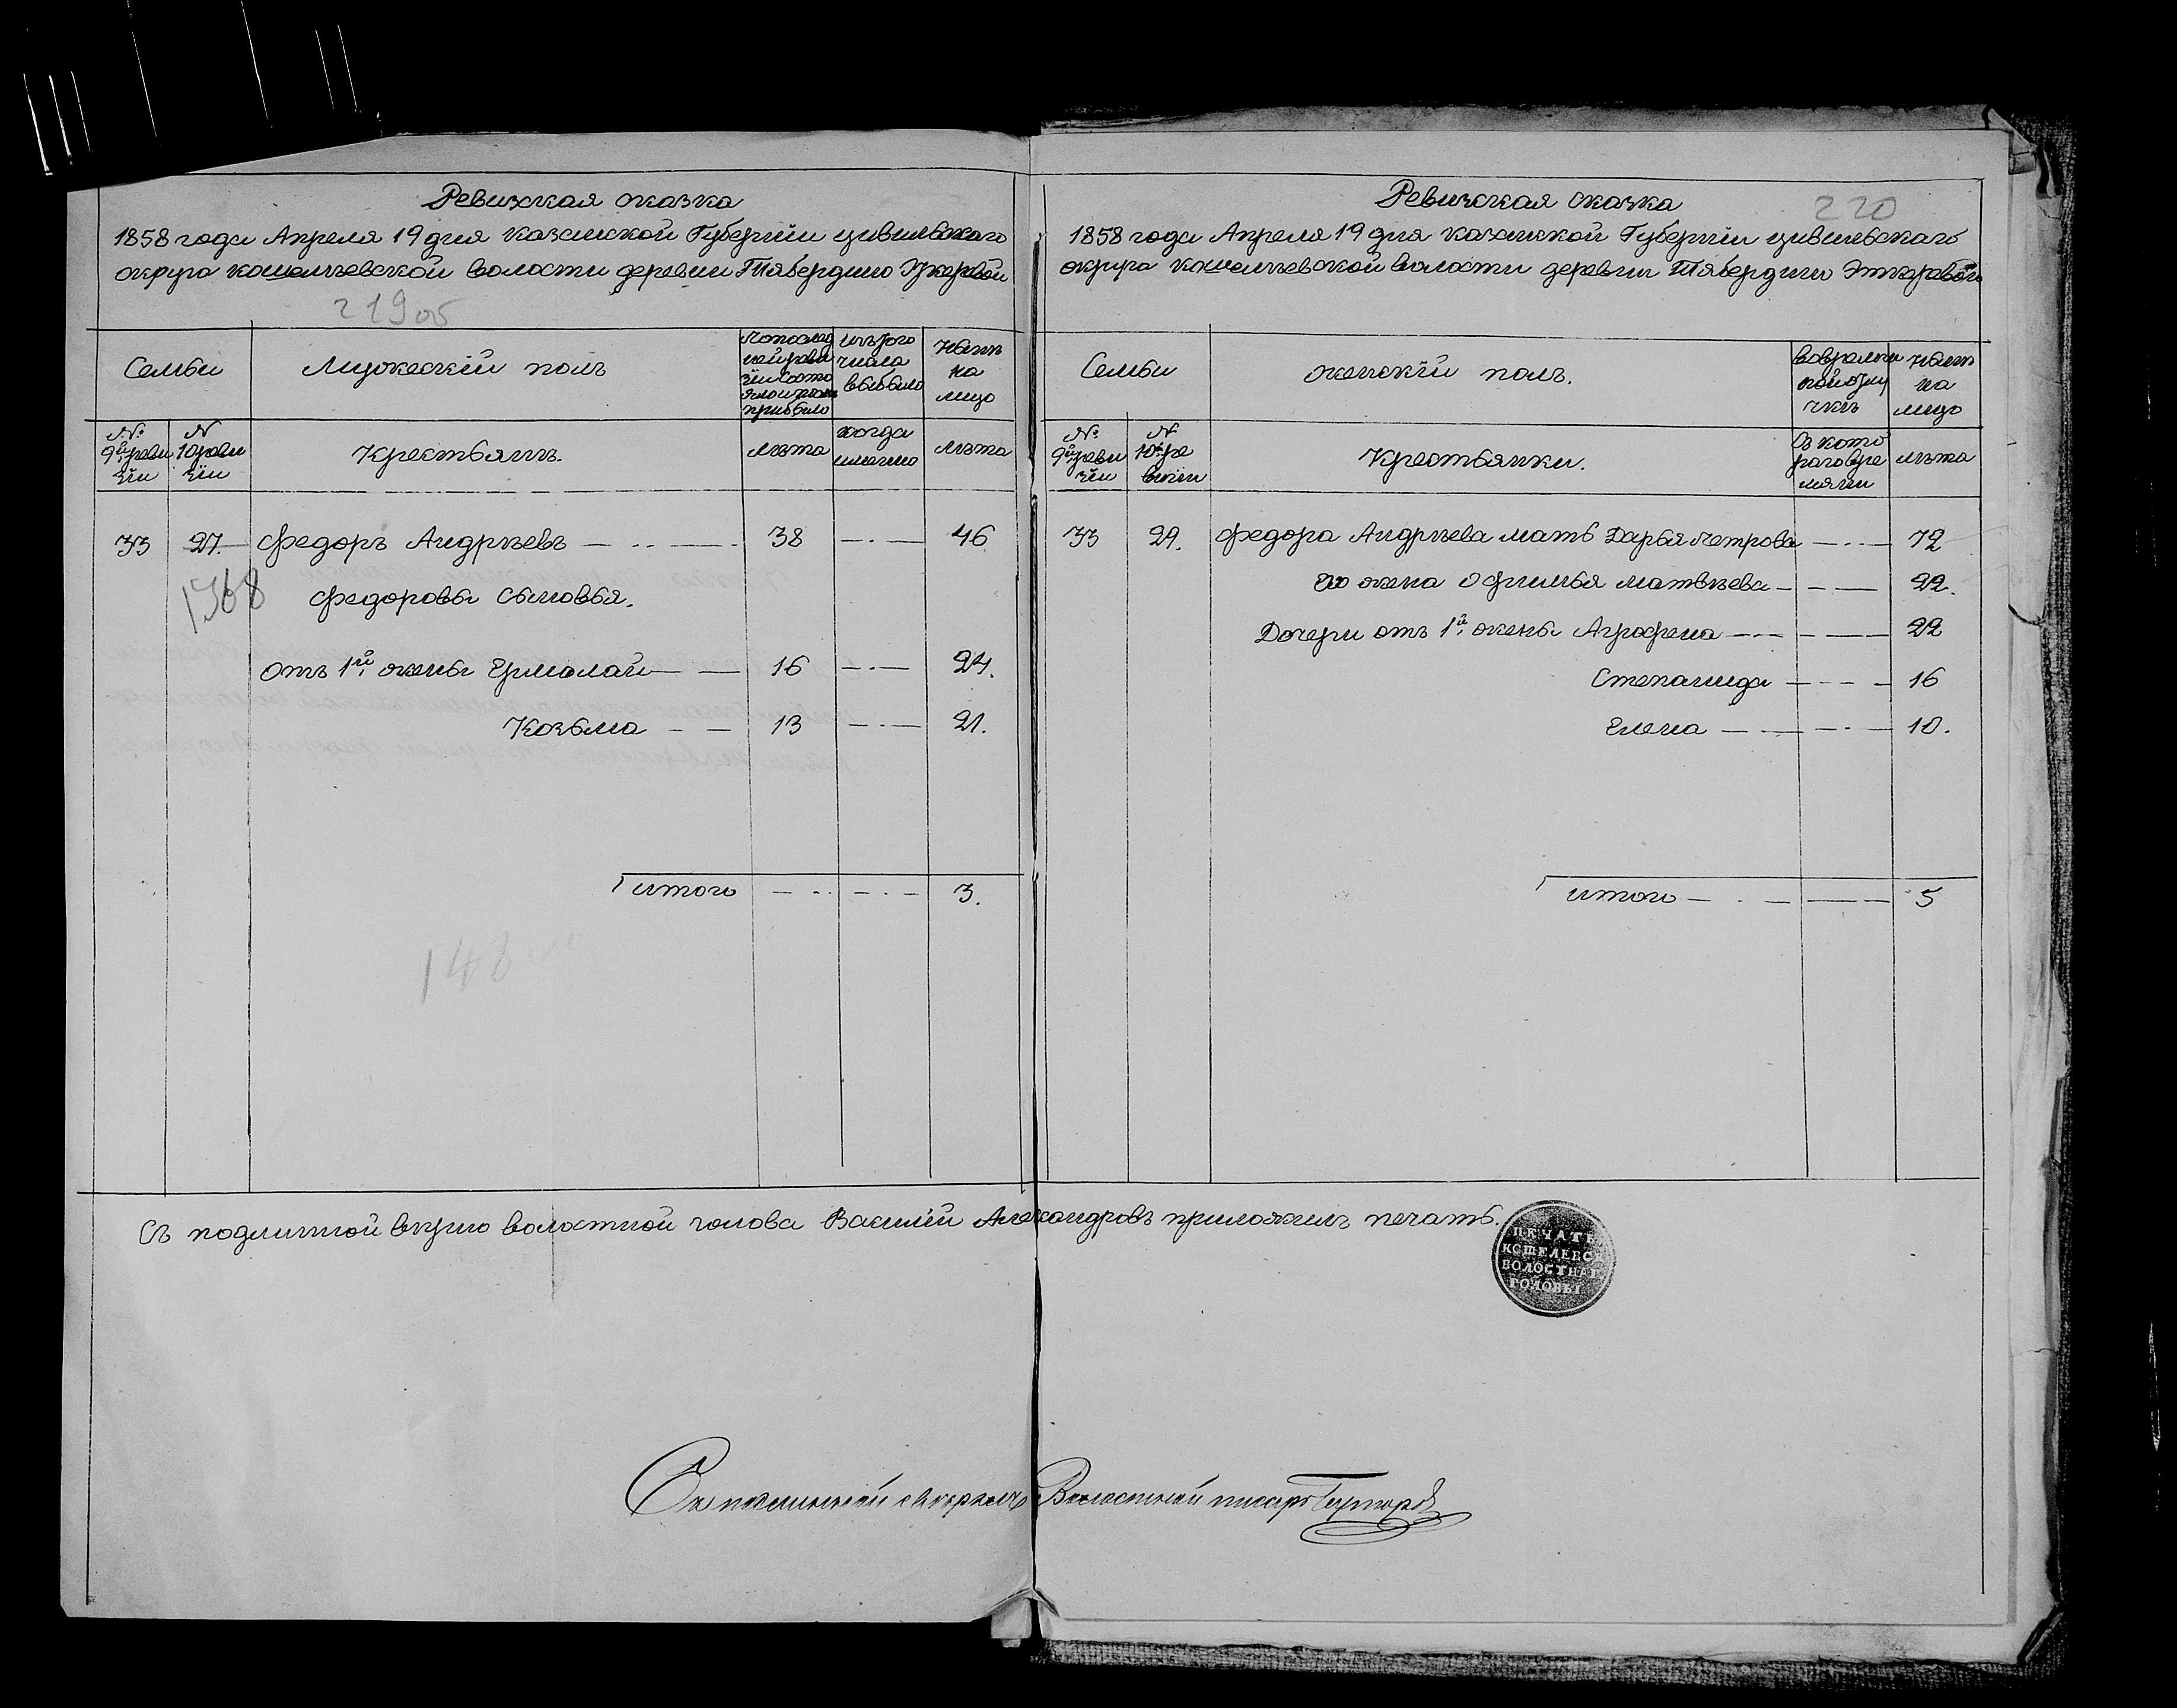 Ревижская сказка
1858 года Апреля 19 дня казанской Губернiи цивильскаго
округа кошелеевской волости деревни Тябердино Эткеровой
219об
Семьи
Мужескiй полъ
По послед
ней реви
зiи состо
яло и после
прибыло
изъ того
числа
выбыло
Нынѣ
на
лицо
№
9й реви
зiи
№
10 реви
зiи
Крестьянъ.
лѣта
когда
именно
лѣта
33 27. Федоръ Андрѣевъ 38 46
1368
Федоровы сыновья.
отъ 1й жены Ермолай 16 24.
Козьма 13 21.
итого 3.
148
Ревижская сказка
220
1858 года Апреля 19 дня казанской Губернiи цивильскаго
округа кошелеевской волости деревни Тябердини Эткеровой
Семьи
женскiй полъ.
во времянной отлу
чкѣ
Нынѣ
на
лицо
№
9й реви
зiи
№
10й ре
визiи
Крестьянки.
съ кото
раго вре
мяни
лѣта
33 29. Федора Андрѣева мать Дарья петрова 72
Его жена Офимья матвѣева 22.
Дочери отъ 1й жены Аграфена 22
Степанида 16
Елена 10.
итого 5
Съ подлинной вѣрно волостной голова Василiй Александровъ приложилъ печать.
ПЕЧАТЬ
КОШЕЛЕЕВСК
ВОЛОСТНАГ
ГОЛОВЫ
Съ подлинной сверялъ Волостной писарь